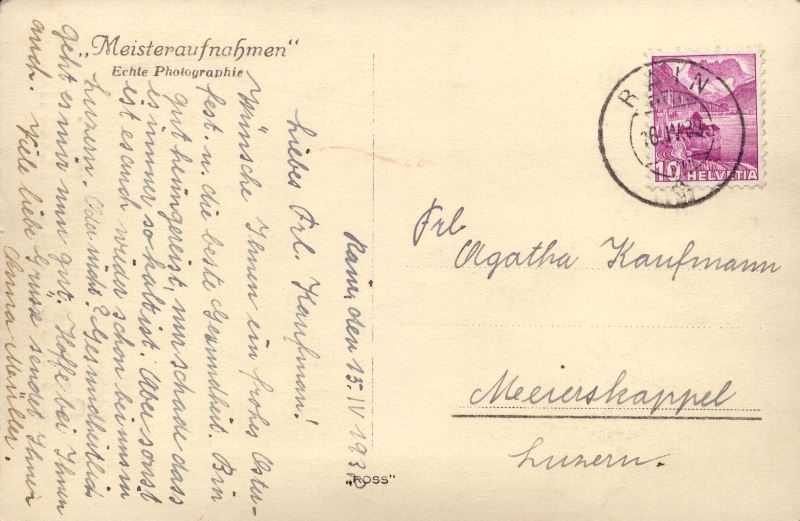 „Meisteraufnahmen“
Echte Photographie
Rain, den 15. IV 193
Liebes Frl. Kaufman!
Wünsche Ihnen ein frohes Oster-
fest. u. die beste Gesundheit. Bin
gut heimgereist, nur schade dass
es immer so kalt ist. Aber sonst
ist es auch wieder schön bei uns in
Luzern. Oder nicht? Gesundheitlich
geht es mir nun gut, Hoffe bei Ihnen
auch. Viele liebe Grüsse sendet Ihnen
Anna Meüller.
"ROSS"
RAIN
IV.39
10 HELVETIA
Frl
Agatha Kaufmann
Meierskappel
Luzern.